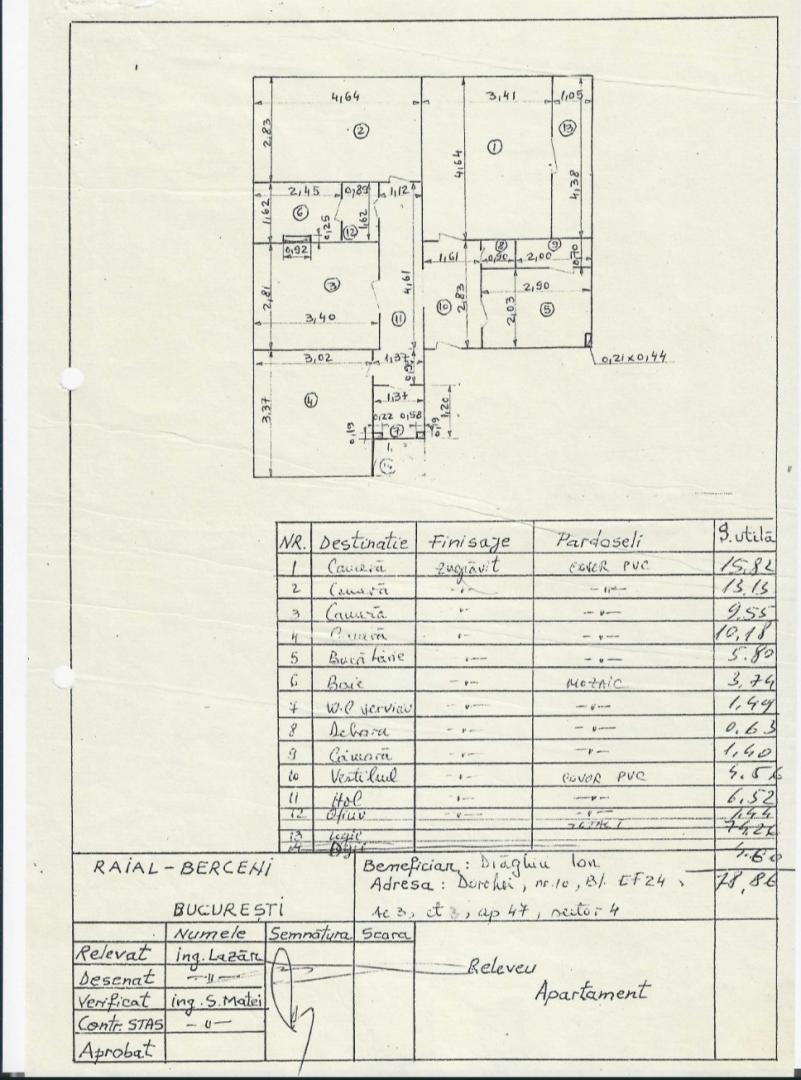 4,64
3,41
1,05
2
1
13
2,83
4,64
4,38
2,45
0,89
1,12
1,62
6
0,25
1,62
12
0,92
8
9
1,61
0,90
2,00
0,70
2,81
3
4,61
10
2,83
2,90
2,03
5
3,40
11
3,02
1,37
0,21x0,44
3,37
4
1,37
1,20
0,22 0,58
0,19
7
0,19
NR. Destinatie Finisaje Pardoseli S.utilă
1 Cameră zugrăvit COVOR PVC 15,82
2 Cameră -"- -"- 13,13
3 Cameră -"- -"- 9,55
4 Cameră -"- -"- 10,18
5 Bucătărie -"- -"- 5.80
6 Baie -"- MOZAIC 3,74
7 W.C serviciu -"- -"- 1,49
8 Debara -"- -"- 0.63
9 Cămară -"- -"- 1,40
10 Vestibul -"- COVOR PVC 4.56
11 Hol -"- -"- 6,52
12 Oficiu -"- -"- 1,44
13 Logie
14
4.60
78,86
RAIAL-BERCENI
BUCUREȘTI
Beneficiar: Drăghiu Ion
Adresa: Dorohoi, nr.10, Bl. EF24,
sc 3, et 3, ap 47, sector 4
Numele Semnătura Scara
Relevat ing. Lazăr
Desenat -"-
Verificat ing. S. Matei
Contr. STAS -"-
Aprobat
Releveu
Apartament